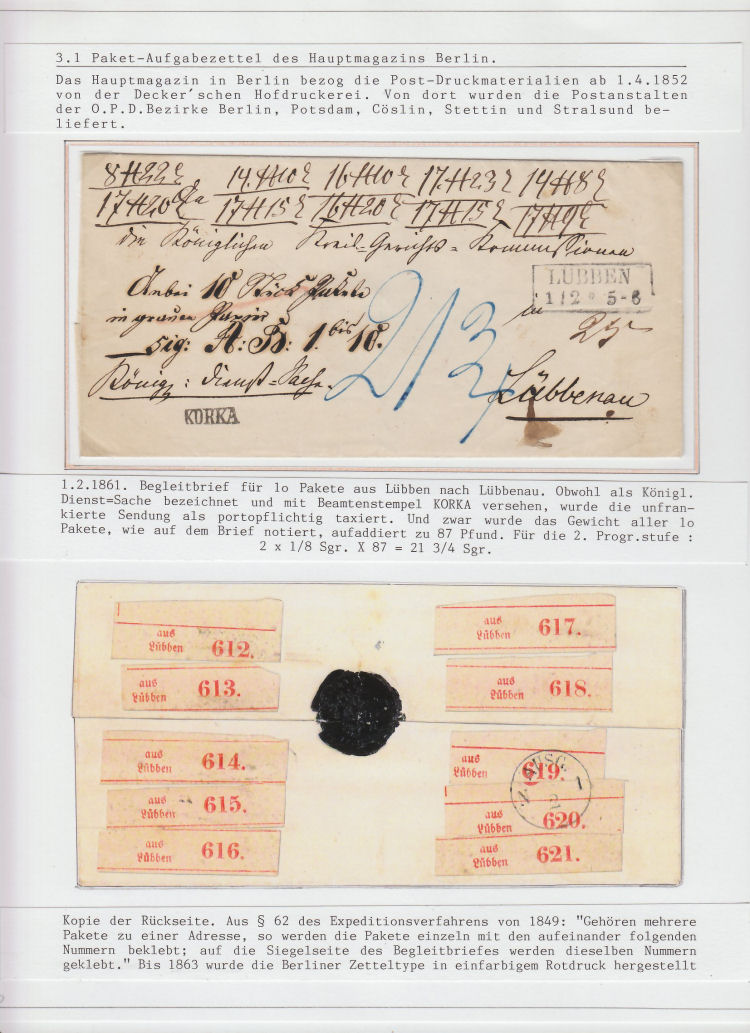 3.1 Paket-Aufgabezettel des Hauptmagazins Berlin.
Das Hauptmagazin in Berlin bezog die Post-Druckmaterialien ab 1.4.1852
von der Decker'schen Hofdruckerei. Von dort wurden die Postanstalten
der O.P.D.Bezirke Berlin, Potsdam, Cöslin, Stettin und Stralsund be-
liefert.
die Königlichen Kreis-Gerichts-Kommissionen
LÜBBEN
1/2 * 5-6
Anbei 10 Stück Pakete
in grauen Papier
in
sig: A: B: 1. bis 10.
2/3
25
König: Dienst-Sache.
Lübbenau
KORKA
1.2.1861. Begleitbrief für 1o Pakete aus Lübben nach Lübbenau. Obwohl als Königl.
Dienst=Sache bezeichnet und mit Beamtenstempel KORKA versehen, wurde die unfran-
kierte Sendung als portopflichtig taxiert. Und zwar wurde das Gewicht aller 1o
Pakete, wie auf dem Brief notiert, aufaddiert zu 87 Pfund. Für die 2. Progr.stufe :
2 x 1/8 Sgr. X 87 = 21 3/4 Sgr.
aus
Lübben 612.
aus
Lübben 613.
aus
Lübben 614.
aus
Lübben 615.
aus
Lübben 616.
aus
Lübben 617.
aus
Lübben 618.
aus
Lübben 619.
AUSG. 1
aus
Lübben 620.
aus
Lübben 621.
Kopie der Rückseite. Aus § 62 des Expeditionsverfahrens von 1849: "Gehören mehrere
Pakete zu einer Adresse, so werden die Pakete einzeln mit den aufeinander folgenden
Nummern beklebt; auf die Siegelseite des Begleitbriefes werden dieselben Nummern
geklebt." Bis 1863 wurde die Berliner Zetteltype in einfarbigem Rotdruck hergestellt